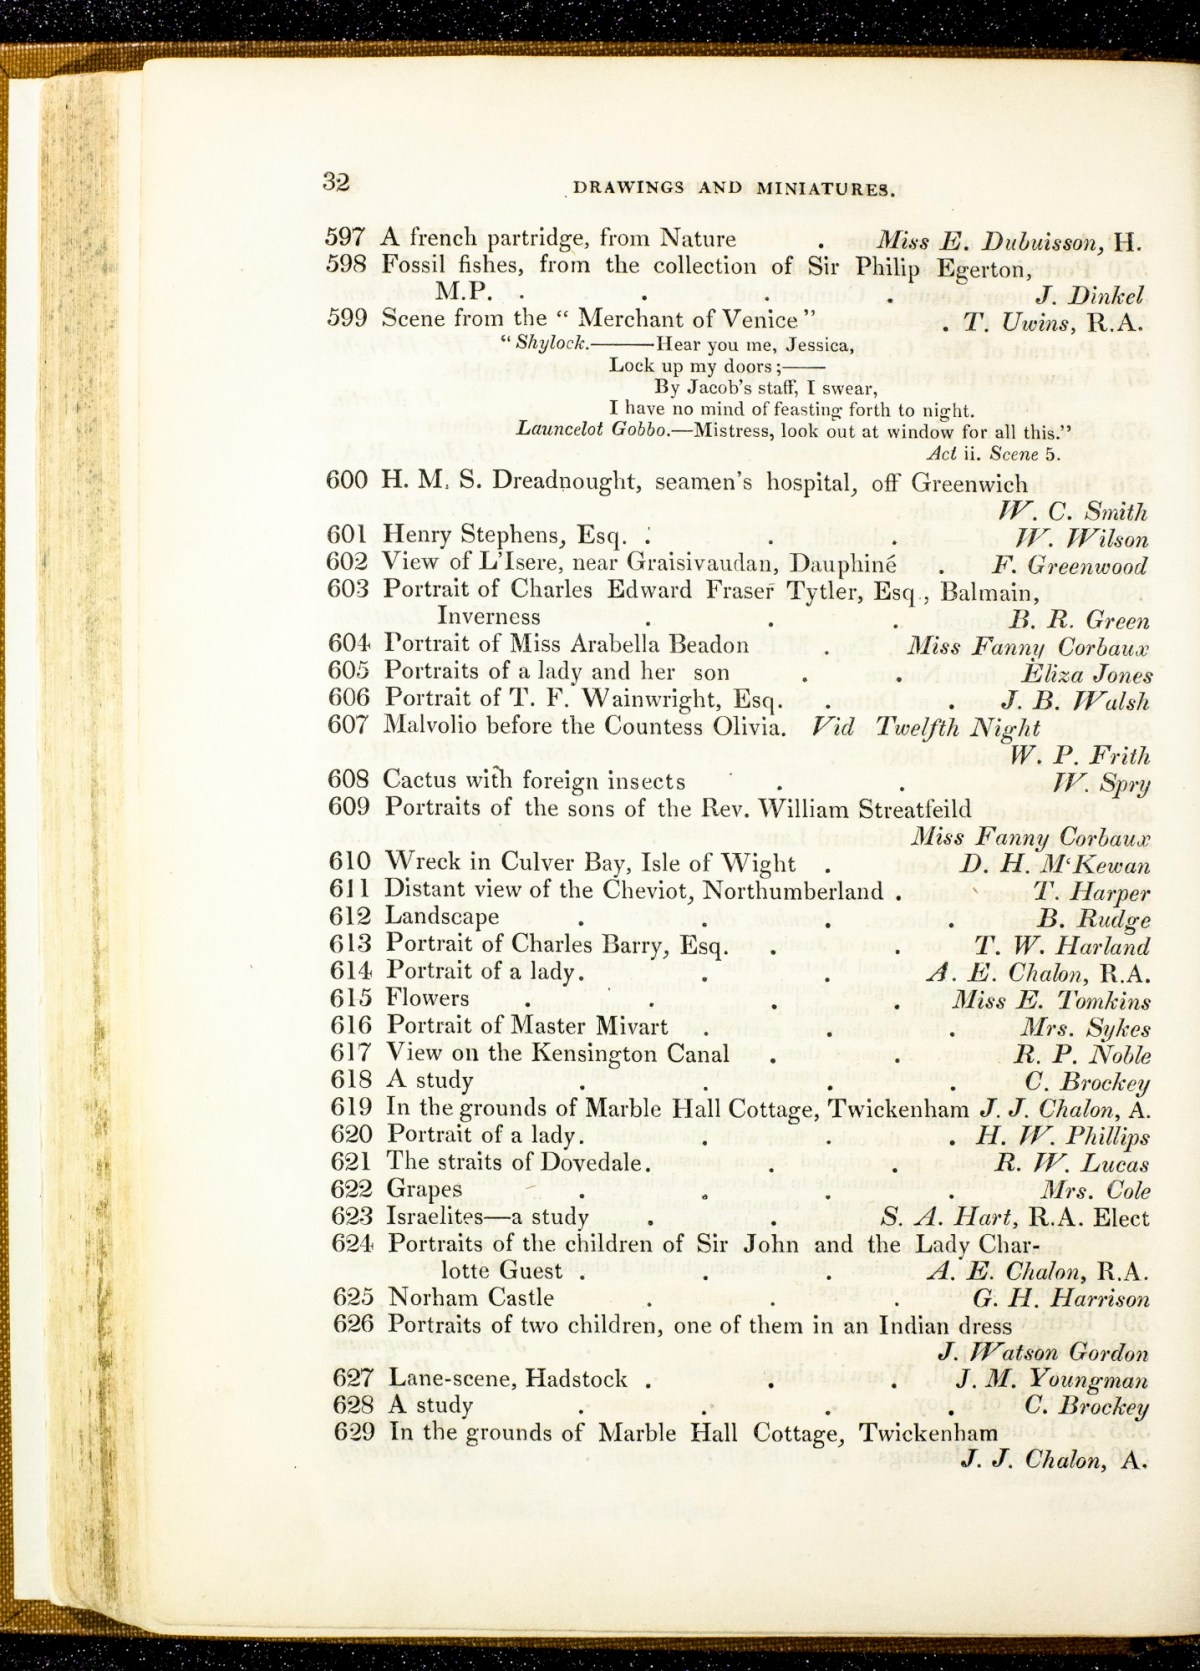 32
DRAWINGS AND MINIATURES.
597 A french partridge, from Nature . Miss E. Dubuisson, H.
598 Fossil fishes, from the collection of Sir Philip Egerton,
M.P. . . . . J. Dinkel
599 Scene from the “ Merchant of Venice ” . T. Uwins, R.A.
“ Shylock.———Hear you me, Jessica,
Lock up my doors ;——
By Jacob’s staff, I swear,
I have no mind of feasting forth to night.
Launcelot Gobbo.—Mistress, look out at window for all this.”
Act ii. Scene 5.
600 H. M. S. Dreadnought, seamen’s hospital, off Greenwich
W. C. Smith
601 Henry Stephens, Esq. . . . W. Wilson
602 View of L’Isere, near Graisivaudan, Dauphiné . F. Greenwood
603 Portrait of Charles Edward Fraser Tytler, Esq., Balmain,
Inverness . . . B. R. Green
604 Portrait of Miss Arabella Beadon . Miss Fanny Corbaux
605 Portraits of a lady and her son . . Eliza Jones
606 Portrait of T. F. Wainwright, Esq. . . J. B. Walsh
607 Malvolio before the Countess Olivia. Vid Twelfth Night
W. P. Frith
608 Cactus with foreign insects . . W. Spry
609 Portraits of the sons of the Rev. William Streatfeild
Miss Fanny Corbaux
610 Wreck in Culver Bay, Isle of Wight . D. H. M‘Kewan
611 Distant view of the Cheviot, Northumberland . T. Harper
612 Landscape . . . . B. Rudge
613 Portrait of Charles Barry, Esq. . . T. W. Harland
614 Portrait of a lady. . . A. E. Chalon, R.A.
615 Flowers . . . . Miss E. Tomkins
616 Portrait of Master Mivart . . . Mrs. Sykes
617 View on the Kensington Canal . . R. P. Noble
618 A study . . . . C. Brockey
619 In the grounds of Marble Hall Cottage, Twickenham J. J. Chalon, A.
620 Portrait of a lady. . . . H. W. Phillips
621 The straits of Dovedale. . . R. W. Lucas
622 Grapes . . . . Mrs. Cole
623 Israelites—a study . . S. A. Hart, R.A. Elect
624 Portraits of the children of Sir John and the Lady Char-
lotte Guest . . . A. E. Chalon, R.A.
625 Norham Castle . . . G. H. Harrison
626 Portraits of two children, one of them in an Indian dress
J. Watson Gordon
627 Lane-scene, Hadstock . . . J. M. Youngman
628 A study . . . . C. Brockey
629 In the grounds of Marble Hall Cottage, Twickenham
J. J. Chalon, A.